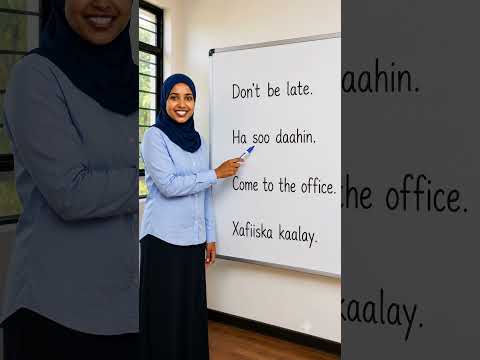 Don't be late.
Ha soo daahin.
Come to the office.
Xafiiska kaalay.